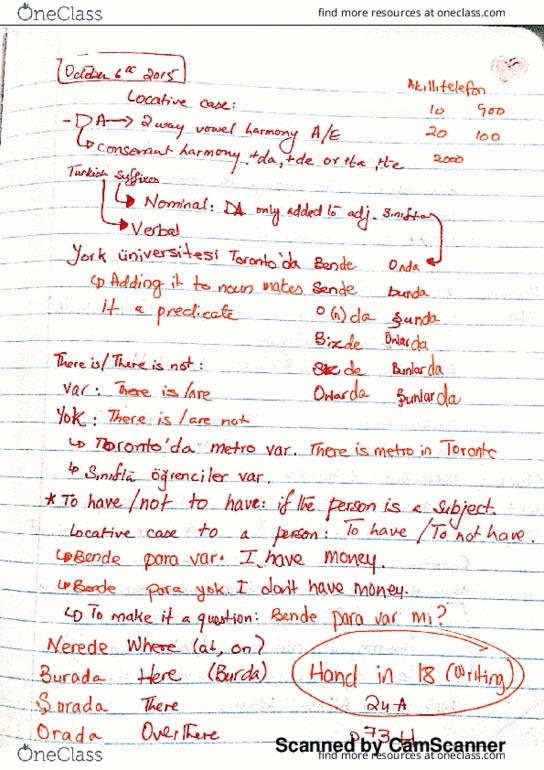 OneClass find more resources at oneclass.com
October 6th 2015
Akıllı telefon
Locative case:
10 900
- DA → 2 way vowel harmony A/E
20 100
↳ consonant harmony +da, +de or +ta, +te
2000
Turkish Suffixes
↳ Nominal: DA only added to adj. Sınıfta
↳ Verbal
York üniversitesi Toronto'da Bende Onda
↳ Adding it to noun makes Sende bunda
it a predicate O(n)da Şunda
Bizde Onlarda
There is/There is not: Sizde Bunlarda
Var: There is/are Onlarda Şunlarda
Yok: There is/are not
↳ Toronto'da metro var. There is metro in Toronto
↳ Sınıfta öğrenciler var.
* To have/not to have: if the person is a subject.
Locative case to a person: To have/To not have.
↳ Bende para var. I have money.
↳ Bende para yok. I don't have money.
↳ To make it a question: Bende para var mı?
Nerede Where (at, on?)
Burada Here (Burda)
Hand in 18 (Writing)
Şurada There
24-A
Orada OverThere
p.73 H
Scanned by CamScanner
OneClass find more resources at oneclass.com